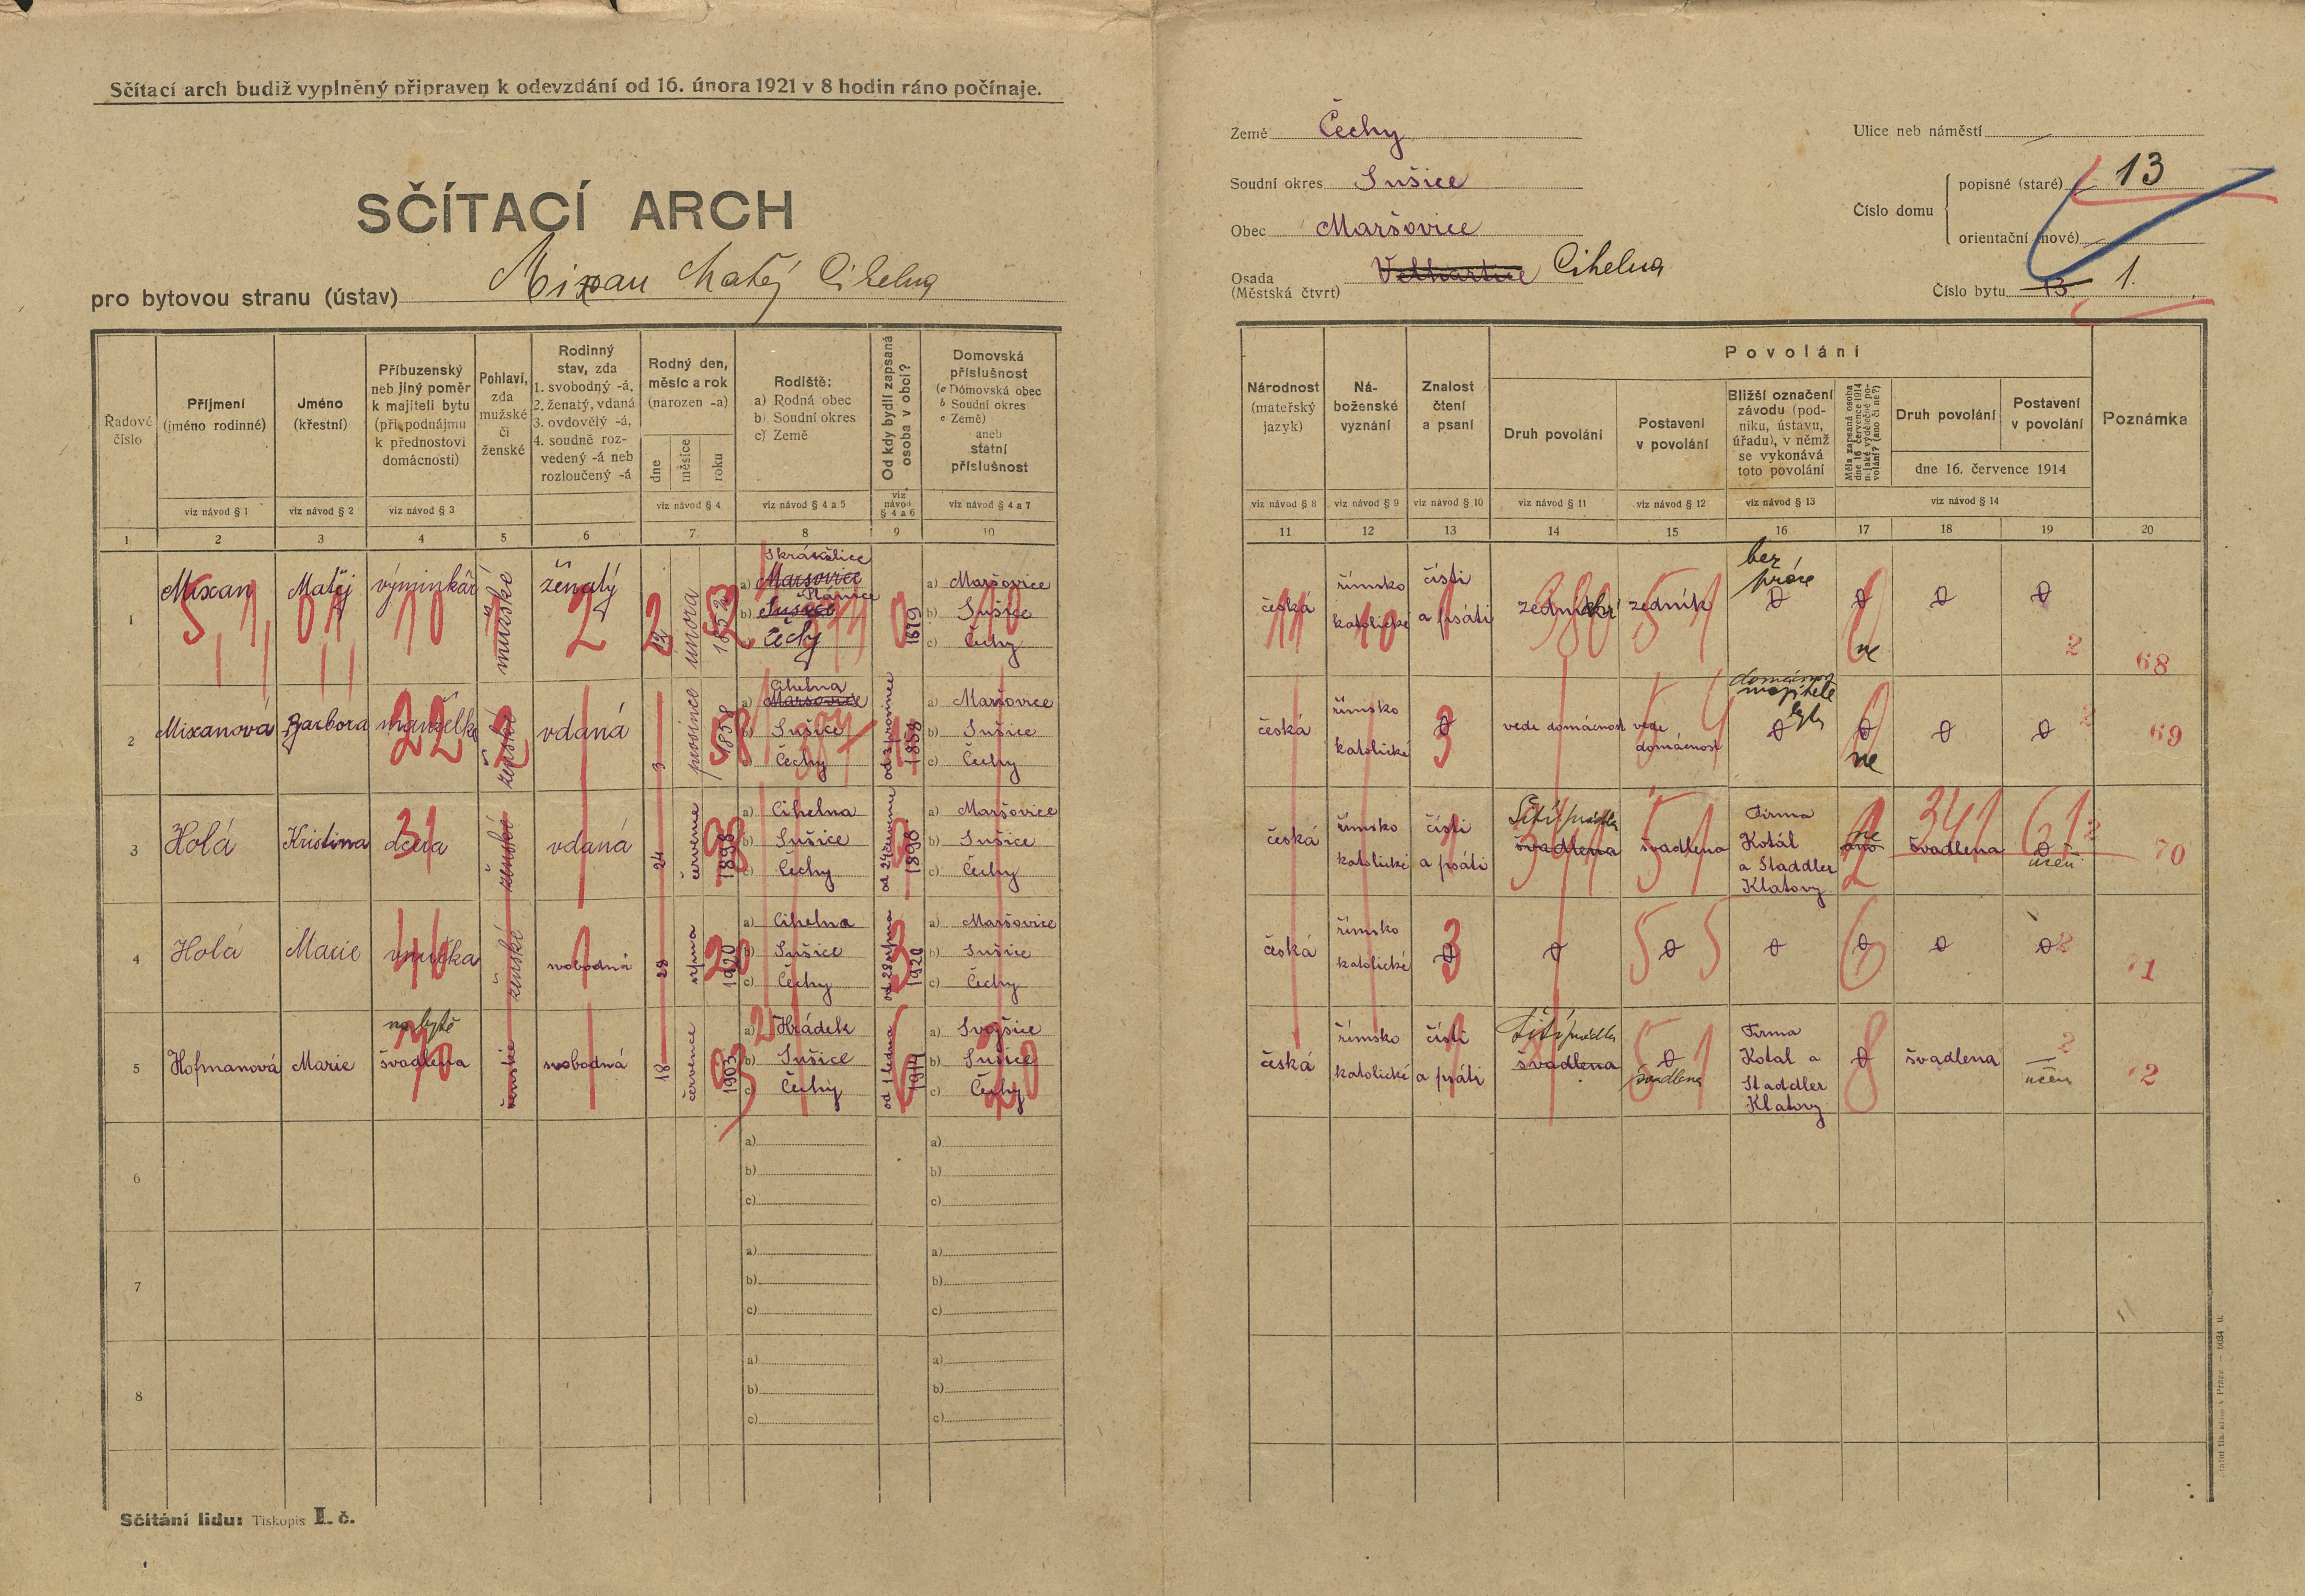 Sčítací arch budiž vyplněný připraven k odevzdání od 16. února 1921 v 8 hodin ráno počínaje.
SČÍTACÍ ARCH
pro bytovou stranu (ústav) Mixan Matěj Cihelna
Země Čechy
Soudní okres Sušice
Obec Maršovice
Osada (Městská čtvrt) Velhartice Cihelna
Ulice neb náměstí
Číslo domu
popisné (staré) 13
orientační (nové)
Číslo bytu 13 1.
Řadové číslo
Příjmení (jméno rodinné)
Jméno (křestní)
Příbuzenský neb jiný poměr k majiteli bytu (při podnájmu k přednostovi domácnosti)
Pohlaví, zda mužské či ženské
Rodinný stav, zda 1. svobodný -á, 2. ženatý, vdaná 3. ovdovělý -á, 4. soudně rozvedený -á neb rozloučený -á
Rodný den, měsíc a rok (narozen -a)
dne měsíce roku
Rodiště: a) Rodná obec b) Soudní okres c) Země
Od kdy bydlí zapsaná osoba v obci?
Domovská příslušnost (a Domovská obec b Soudní okres c Země) aneb státní příslušnost
viz návod § 1 viz návod § 2 viz návod § 3 viz návod § 4 viz návod § 4 a 5 viz návod § 4 a 6 viz návod § 4 a 7
1 2 3 4 5 6 7 8 9 10
Národnost (mateřský jazyk)
Náboženské vyznání
Znalost čtení a psaní
Povolání
Druh povolání
Postavení v povolání
Bližší označení závodu (podniku, ústavu, úřadu), v němž se vykonává toto povolání
Měla zapsaná osoba dne 16 července 1914 nějaké výdělečné povolání? (ano či ne?)
Druh povolání
Postavení v povolání
dne 16. července 1914
Poznámka
viz návod § 8 viz návod § 9 viz návod § 10 viz návod § 11 viz návod § 12 viz návod § 13 viz návod § 14
11 12 13 14 15 16 17 18 19 20
1 Mixan Matěj výminkář mužské ženatý 12 února 1852 a) Maršovice b) Sušice Plánice c) Čechy 1879 a) Maršovice b) Sušice c) Čechy
česká římsko katolické čísti a psáti zedník bez práce ne 2 68
2 Mixanová Barbora manželka ženské vdaná 3 prosince 1858 a) Cihelna Maršovice b) Sušice c) Čechy od 3 prosince 1858 a) Maršovice b) Sušice c) Čechy
česká římsko katolické vede domácnost vede domácnost majitele bytu ne 69
3 Holá Kristina dcera ženské vdaná 24 července 1898 a) Cihelna b) Sušice c) Čechy od 24 července 1898 a) Maršovice b) Sušice c) Čechy
česká římsko katolické čísti a psáti Šití prádla švadlena švadlena Firma Kotál a Staddler Klatovy ne ano švadlena 70
4 Holá Marie vnučka ženské svobodná 28 srpna 1920 a) Cihelna b) Sušice c) Čechy od 28 srpna 1920 a) Maršovice b) Sušice c) Čechy
česká římsko katolické 71
5 Hofmanová Marie na bytě švadlena ženské svobodná 18 července 1903 a) Hrádek b) Sušice c) Čechy od 1 ledna 1914 a) Svojšice b) Sušice c) Čechy
česká římsko katolické čísti a psáti Šití prádla švadlena švadlena Firma Kotal a Staddler Klatovy švadlena
6 a) b) c) a) b) c)
7 a) b) c) a) b) c)
8 a) b) c) a) b) c)
Sčítání lidu: Tiskopis I. č.